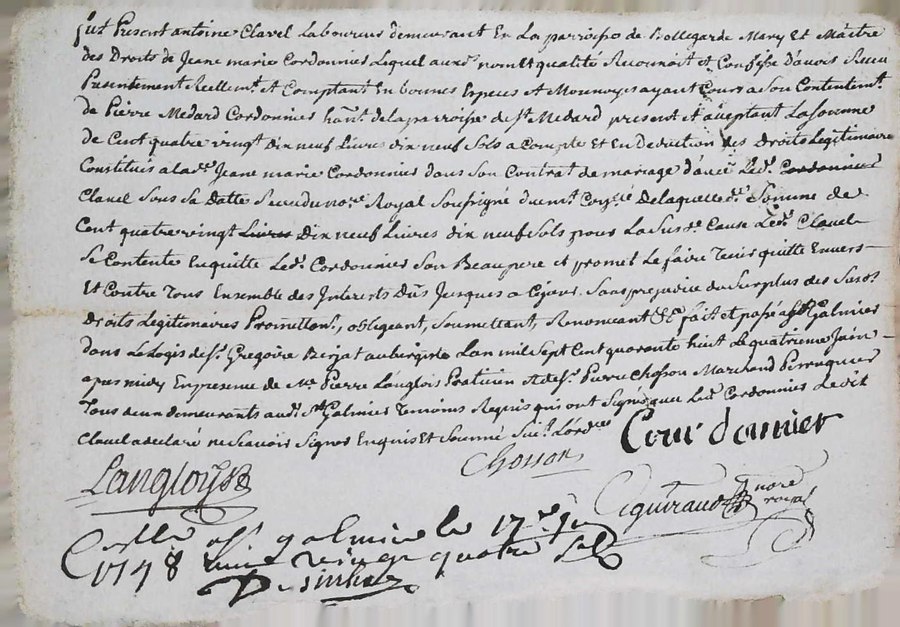 fut Present antoine Clavel Laboureur demeurant En La parroisse de Bellegarde Mary Et Maitre
des Droits de Jeane marie Cordonnier Lequel aux.s nom Et qualité Reconnoit et Confesse d'avoir Receu
Presentement Reellem.t Et Comptant En bonnes Especes Et Monnoyes ayant Cours a Son Contentem.t
de Pierre Medard Cordonnier de la parroisse de S.t Medard present Et aceptant La Somme
de Cent quatre vingt Dix neuf Livres dix neuf Sols a Compte Et En Deduction des Droits Legitimaire
Constitués a lad.e Jeane marie Cordonnier dans Son Contrat de mariage d'avec Led. Cordonnier
Clavel Sous Sa Datte Receu du no.re Royal Soussigné De laquelle d.e Somme de
Cent quatre vingt Livres Dix neuf Livres dix neuf Sols pour La Sus.e Cause Led. Clavel
Se Contente En quitte Led. Cordonnier Son Beaupere Et promet Le faire Tenir quitte Envers
Et Contre Tous Ensemble des Interets Dus Jusques a Cejour Sans prejudice du Surplus des Sus.d
Droits Legitimaires Promettant, obligeant, Soumettant, Renonceant &c fait et passé a S.t Galmier
dans Le Logis de S.r Gregoire Berjat aubergiste L'an mil Sept Cent quarante huit Le quatrieme Juin
apres midy En presence de M.e Pierre Langlois Praticien Et de S.r Pierre Chosson Marchand Perruquier
Tous deux demeurants aud. S.t Galmier Temoins Requis qui ont Signés avec Led. Cordonnier Led.it
Clavel a declaré ne Scavoir Signer Enquis Et Sommé
Cour donnier
Chosson
Langloys
Cguiraud nore
royal
Con.lle a S.t galmier le 17.e
1748 vingt quatre sols